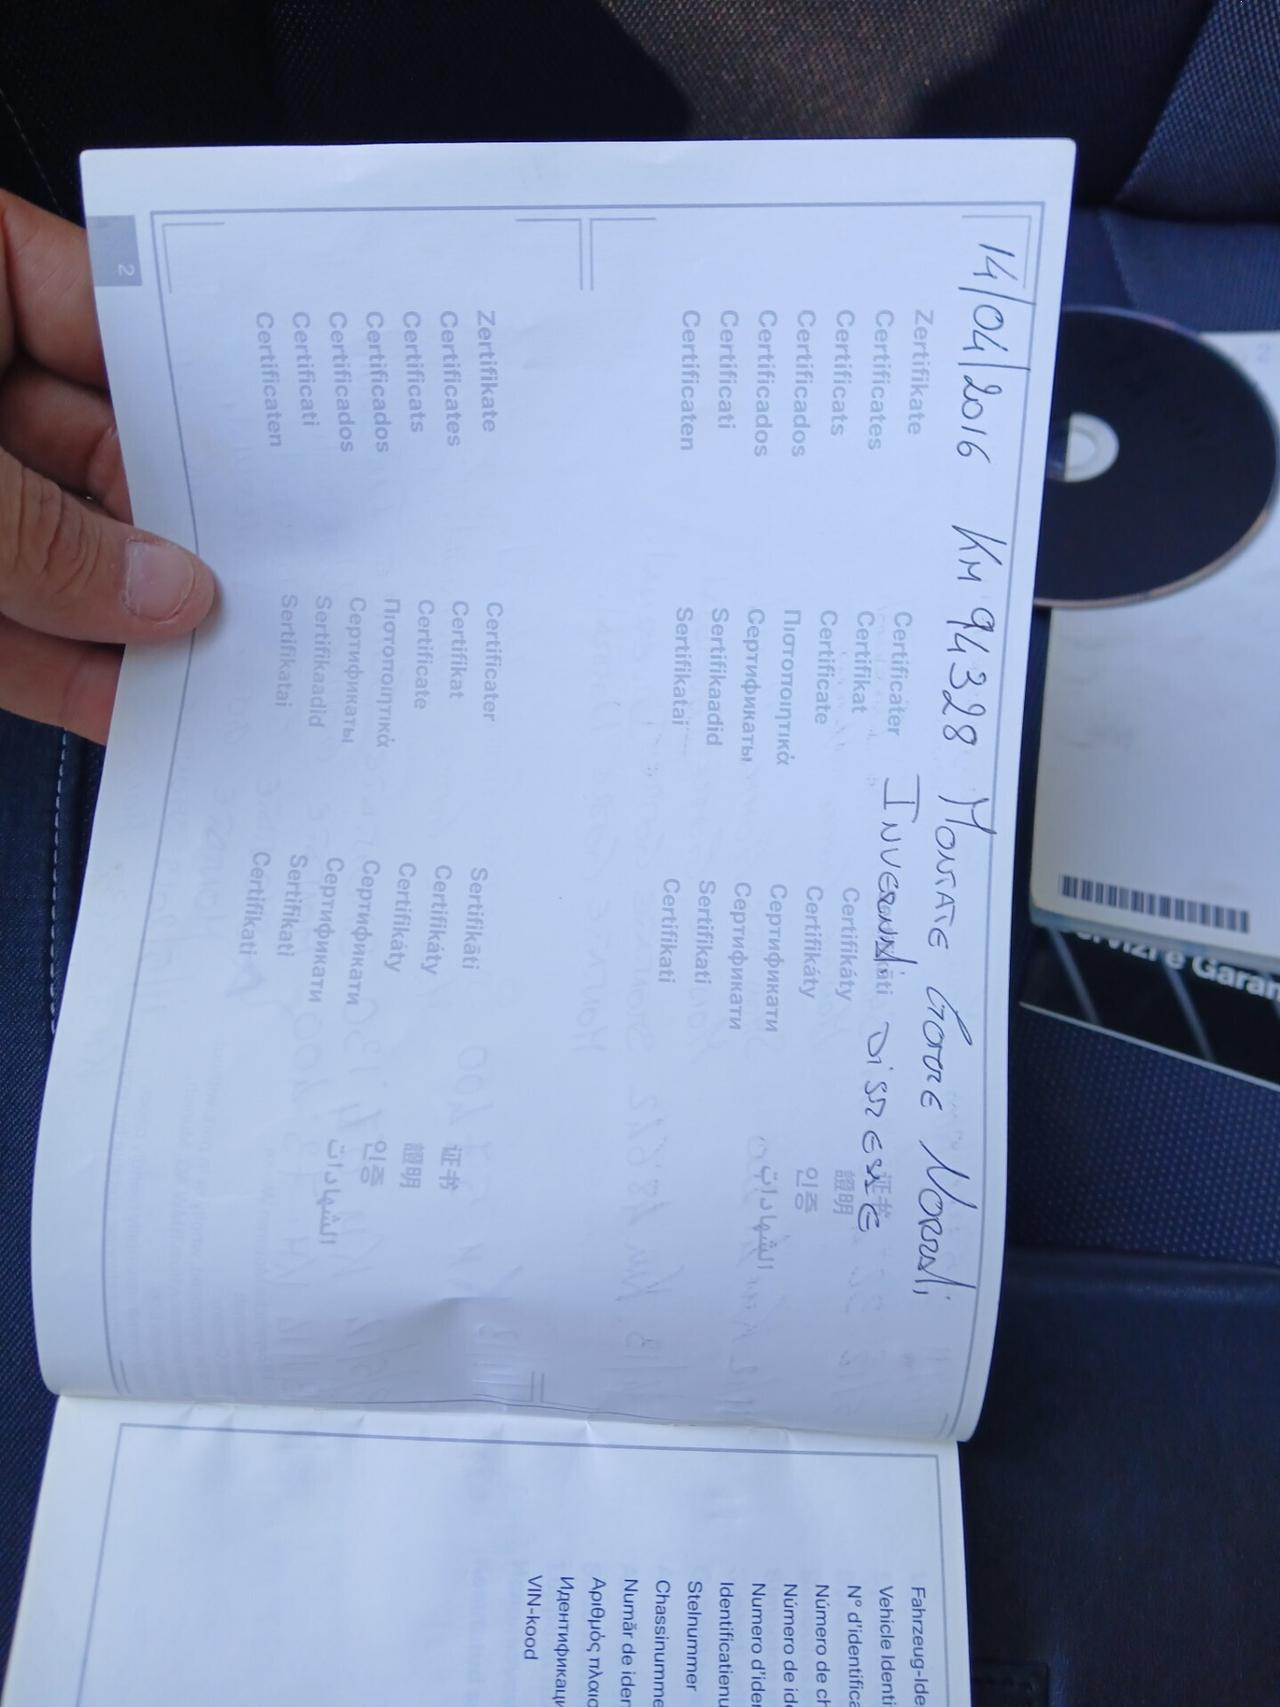 14/04/2016 KM 94328 MONTATE GOMME NORMALI
INVERNALI DISMESSE
Zertifikate
Certificates
Certificats
Certificados
Certificados
Certificati
Certificaten
Certificater
Certifikat
Certificate
Πιστοποιητικά
Сертификаты
Sertifikaadid
Sertifikatai
Certifikáty
Certifikáty
Сертификати
Сертификати
Sertifikati
Certifikati
证书
證明
인증
الشهادات
Zertifikate
Certificates
Certificats
Certificados
Certificados
Certificati
Certificaten
Certificater
Certifikat
Certificate
Πιστοποιητικά
Сертификаты
Sertifikaadid
Sertifikatai
Sertifikāti
Certifikáty
Certifikáty
Сертификати
Сертификати
Sertifikati
Certifikati
证书
證明
인증
الشهادات
2
Fahrzeug-Ide
Vehicle Identi
N° d'identifica
Número de ch
Número de ide
Numero d'ider
Identificatienu
Stelnummer
Chassinumme
Număr de iden
Αριθμός πλαισ
Идентификаци
VIN-kood
ervizi e Garan